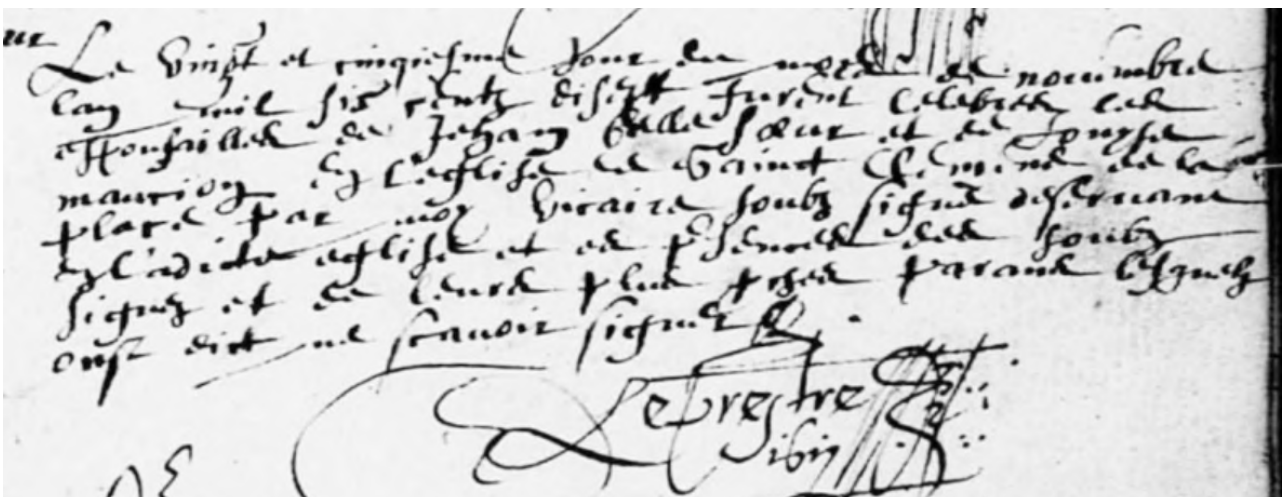 ur
Le vingt et cinqiesme jour du moys de novembre
lan mil six centz disept furent celebrez les
espousailles de Jehan belle sœur et de Louyse
mancion en l'eglise de Sainct Clement de la
place par moy vicaire soubz signé deservant
en ladicte eglise et es p̃sences des soubz
signez et de leurs plus pches parans lesquelz
ont dict ne scavoir signer
Leprestre
1617